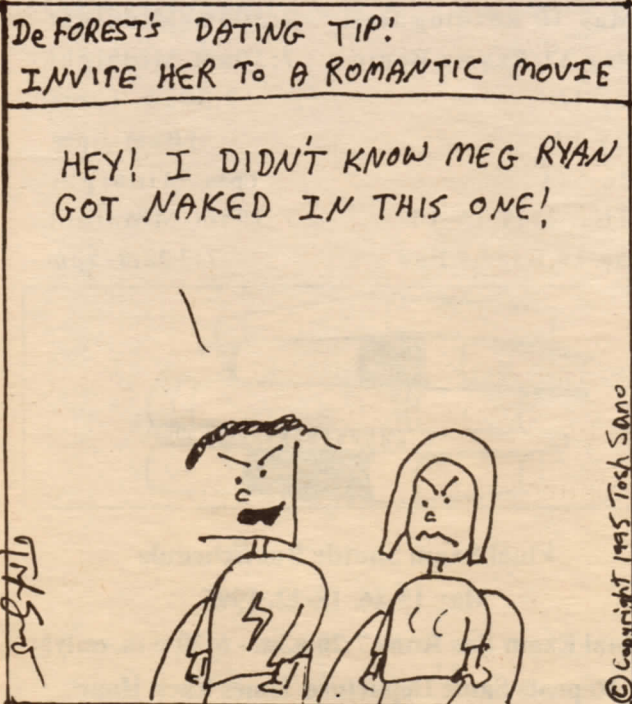 DeFOREST'S DATING TIP!
INVITE HER TO A ROMANTIC MOVIE
HEY! I DIDN'T KNOW MEG RYAN
GOT NAKED IN THIS ONE!
© Copyright 1995 Tosh Sano